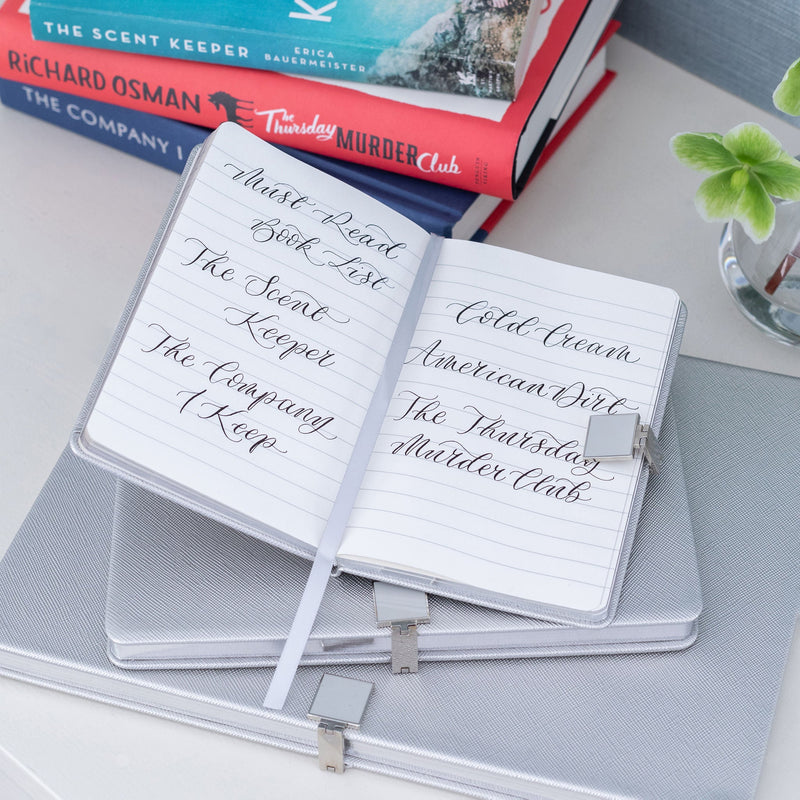 K
THE SCENT KEEPER
ERICA
BAUERMEISTER
RICHARD OSMAN
The
Thursday
MURDER
Club
PENGUIN
VIKING
THE COMPANY I
Must Read
Book List
The Scent
Keeper
The Company
I Keep
Cold Cream
American Dirt
The Thursday
Murder Club